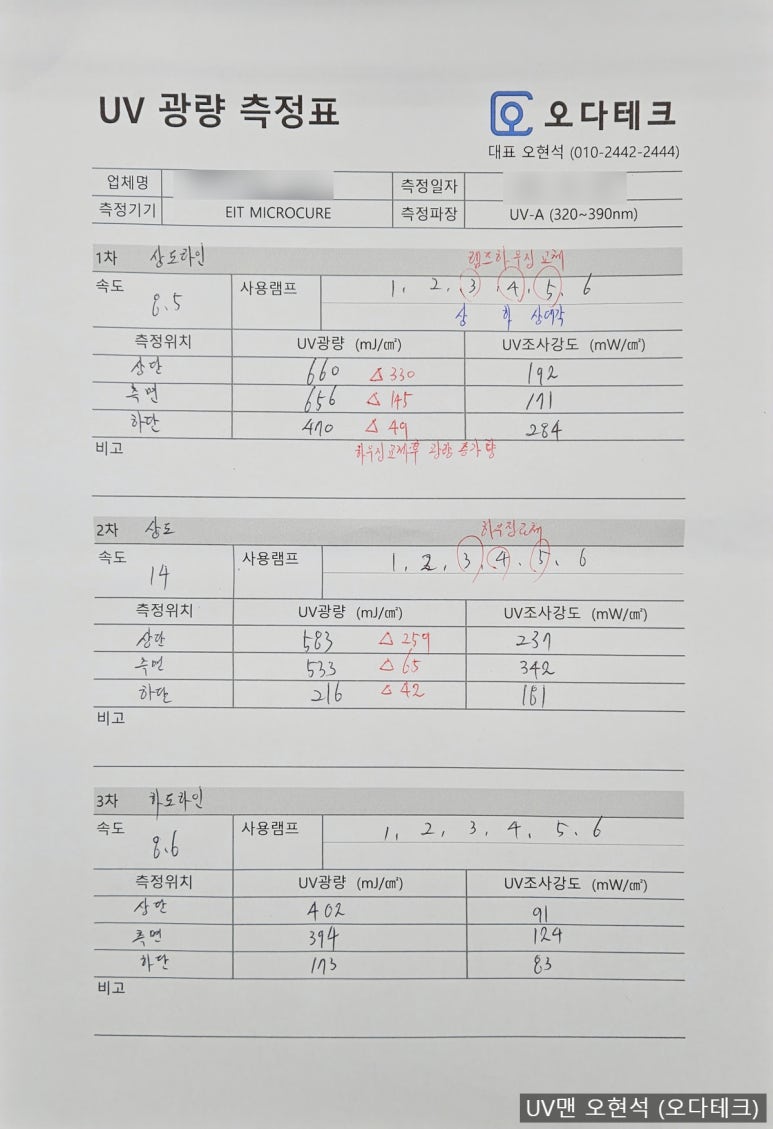 UV 광량 측정표
오다테크
대표 오현석 (010-2442-2444)
업체명 측정일자
측정기기 EIT MICROCURE 측정파장 UV-A (320~390nm)
1차 상도라인 램프하우징 교체
속도 8.5 사용램프 1, 2, 3, 4, 5, 6
상 하 상여각
측정위치 UV광량 (mJ/㎠) UV조사강도 (mW/㎠)
상단 660 △ 330 192
측면 656 △ 145 171
하단 470 △ 49 284
비고 하우징교체후 광량 증가량
2차 상도 하우징교체
속도 14 사용램프 1, 2, 3, 4, 5, 6
측정위치 UV광량 (mJ/㎠) UV조사강도 (mW/㎠)
상단 583 △ 259 237
측면 533 △ 65 342
하단 216 △ 42 181
비고
3차 하도라인
속도 8.6 사용램프 1, 2, 3, 4, 5, 6
측정위치 UV광량 (mJ/㎠) UV조사강도 (mW/㎠)
상단 402 91
측면 394 124
하단 173 83
비고
UV맨 오현석 (오다테크)